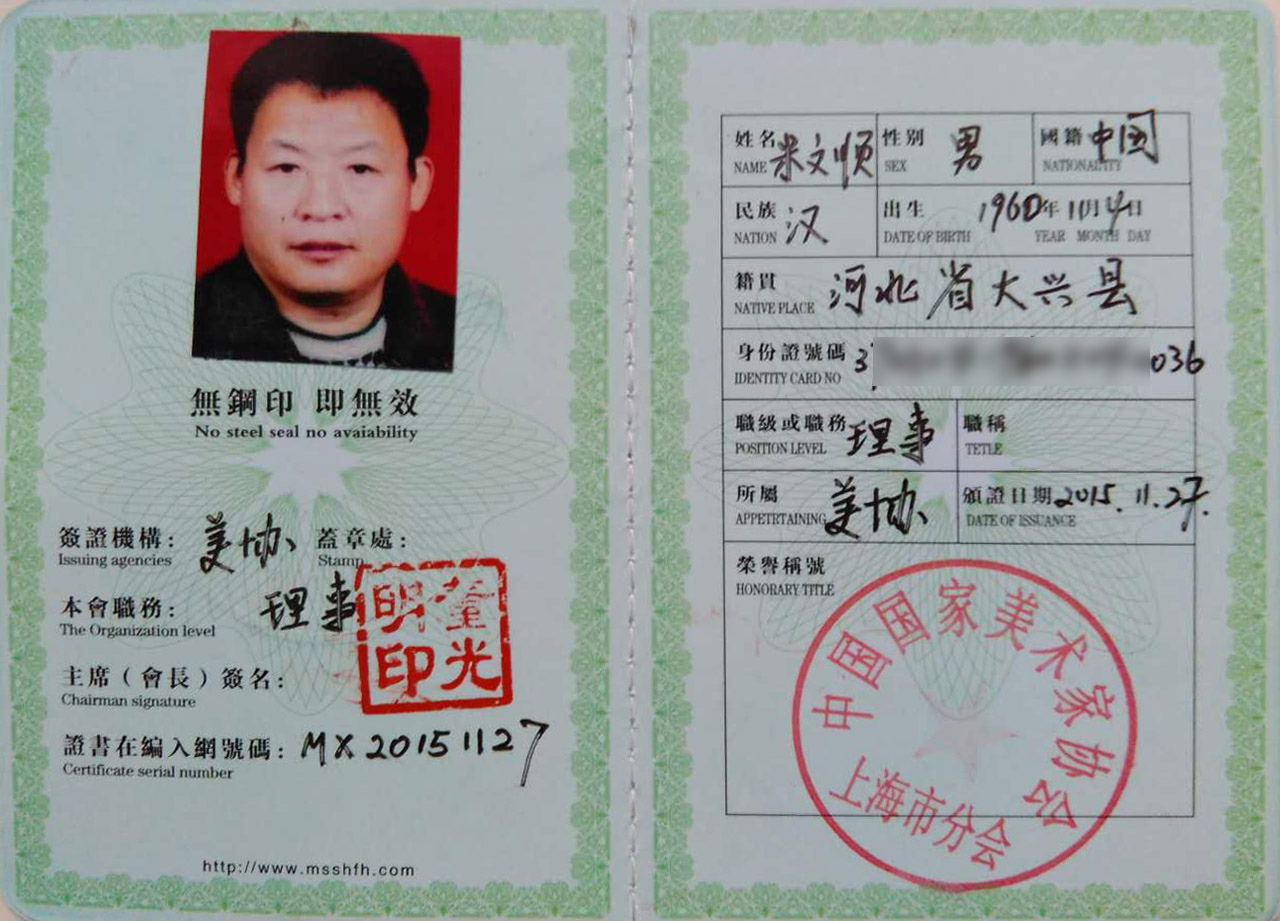 無鋼印 即無效
No steel seal no avaiability
簽證機構: 美协 蓋章處:
Issuing agencies Stamp
本會職務: 理事
The Organization level
明
印 光
主席(會長)簽名:
Chairman signature
證書在編入網號碼: MX20151127
Certificate serial number
http://www.msshfh.com
姓名 米文顺 性别 男 國籍 中国
NAME SEX NATIONALITY
民族 汉 出生 1960年11月4日
NATION DATE OF BIRTH YEAR MONTH DAY
籍貫 河北省大兴县
NATIVE PLACE
身份證號碼 3 036
IDENTITY CARD NO
職級或職務 理事 職稱
POSITION LEVEL TETLE
所屬 美协 頒證日期 2015.11.27.
APPETRTAINING DATE OF ISSUANCE
榮譽稱號
HONORARY TITLE
中国国家美术家协会
上海市分会